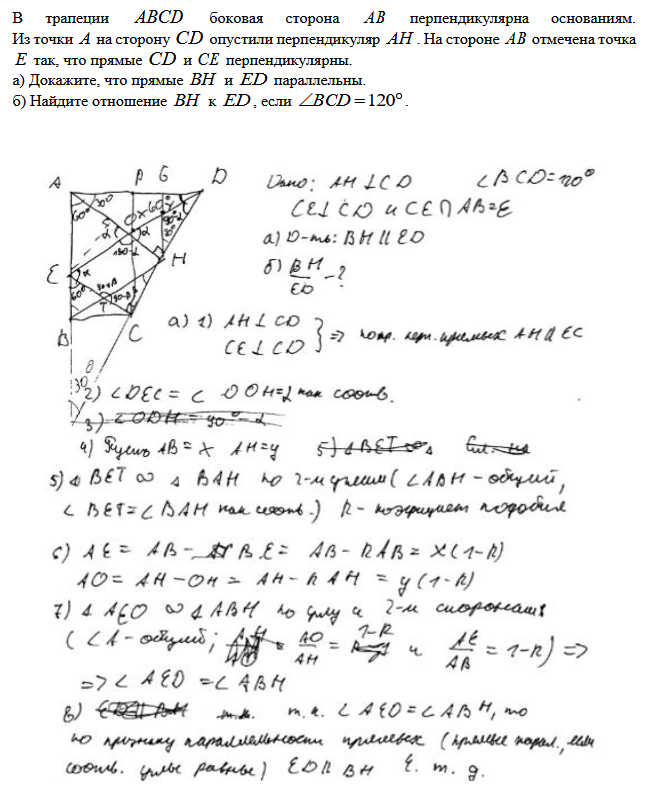 В трапеции ABCD боковая сторона AB перпендикулярна основаниям.
Из точки A на сторону CD опустили перпендикуляр AH. На стороне AB отмечена точка
E так, что прямые CD и CE перпендикулярны.
а) Докажите, что прямые BH и ED параллельны.
б) Найдите отношение BH к ED, если ∠BCD = 120°.
A P G D
60° 30°
E H
B T C
30
Дано: AH ⊥ CD ∠BCD = 120°
CE ⊥ CD и CE ∩ AB = E
а) D-ть: BH || ED
б) BH/ED - ?
а) 1) AH ⊥ CD
CE ⊥ CD } => AH || EC
2) ∠DEC = ∠DOH = α как соотв.
3) ∠ODH = 90° - α
4) Пусть AB = x AH = y 5) △BET ∞ △
5) △BET ∞ △BAH по 2-м углам (∠ABH - общий,
∠BET = ∠BAH как соотв.) R - коэффициент подобия
6) AE = AB - BE = AB - RAB = x(1-R)
AO = AH - OH = AH - RAH = y(1-R)
7) △AEO ∞ △ABH по углу и 2-м сторонам
(∠A - общий; AO/AH = 1-R и AE/AB = 1-R) =>
=> ∠AEO = ∠ABH
8) т.к. т.к. ∠AEO = ∠ABH, то
по признаку параллельности прямых (прямые парал., если
соотв. углы равны) ED || BH Ч. т. д.